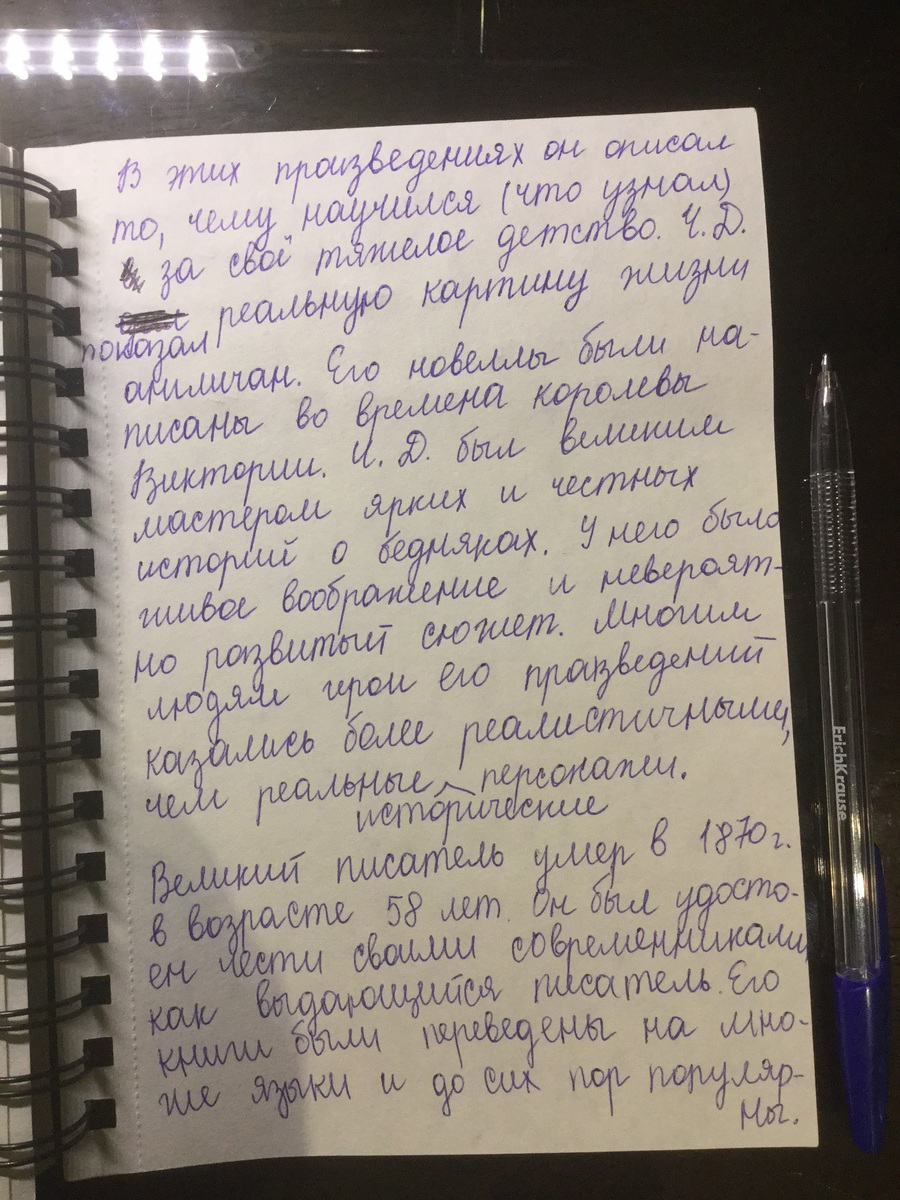 В этих произведениях он описал
то, чему научился (что узнал)
за своё тяжелое детство. Ч.Д.
показал реальную картину жизни
англичан. Его новеллы были на-
писаны во времена королевы
Виктории. Ч. Д. был великим
мастером ярких и честных
историй о бедняках. У него было
живое воображение и невероят-
но развитый сюжет. Многим
людям герои его произведений
казались более реалистичными,
чем реальные исторические персонажи.
Великий писатель умер в 1870 г.
в возрасте 58 лет. Он был удосто-
ен чести своими современниками,
как выдающийся писатель. Его
книги были переведены на мно-
гие языки и до сих пор популяр-
ны.
ErichKrause